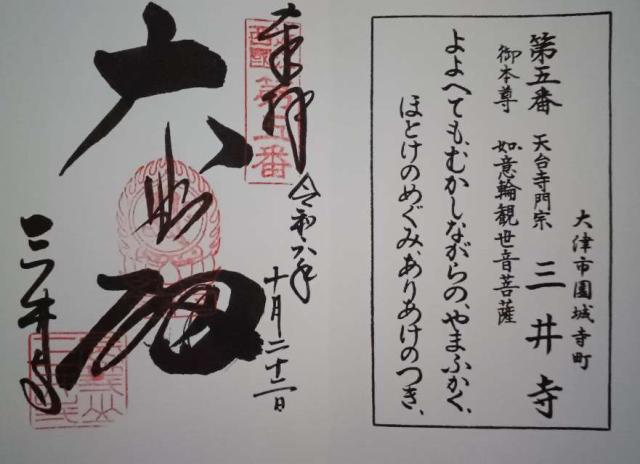 大津市園城寺町
第五番 天台寺門宗 三井寺
御本尊 如意輪観世音菩薩
よよへても、むかしながらの、やまふかく、
ほとけのめぐみ、ありあけのつき、
奉拝
第五番
令和六年
十月二十二日
大悲閣
三井寺